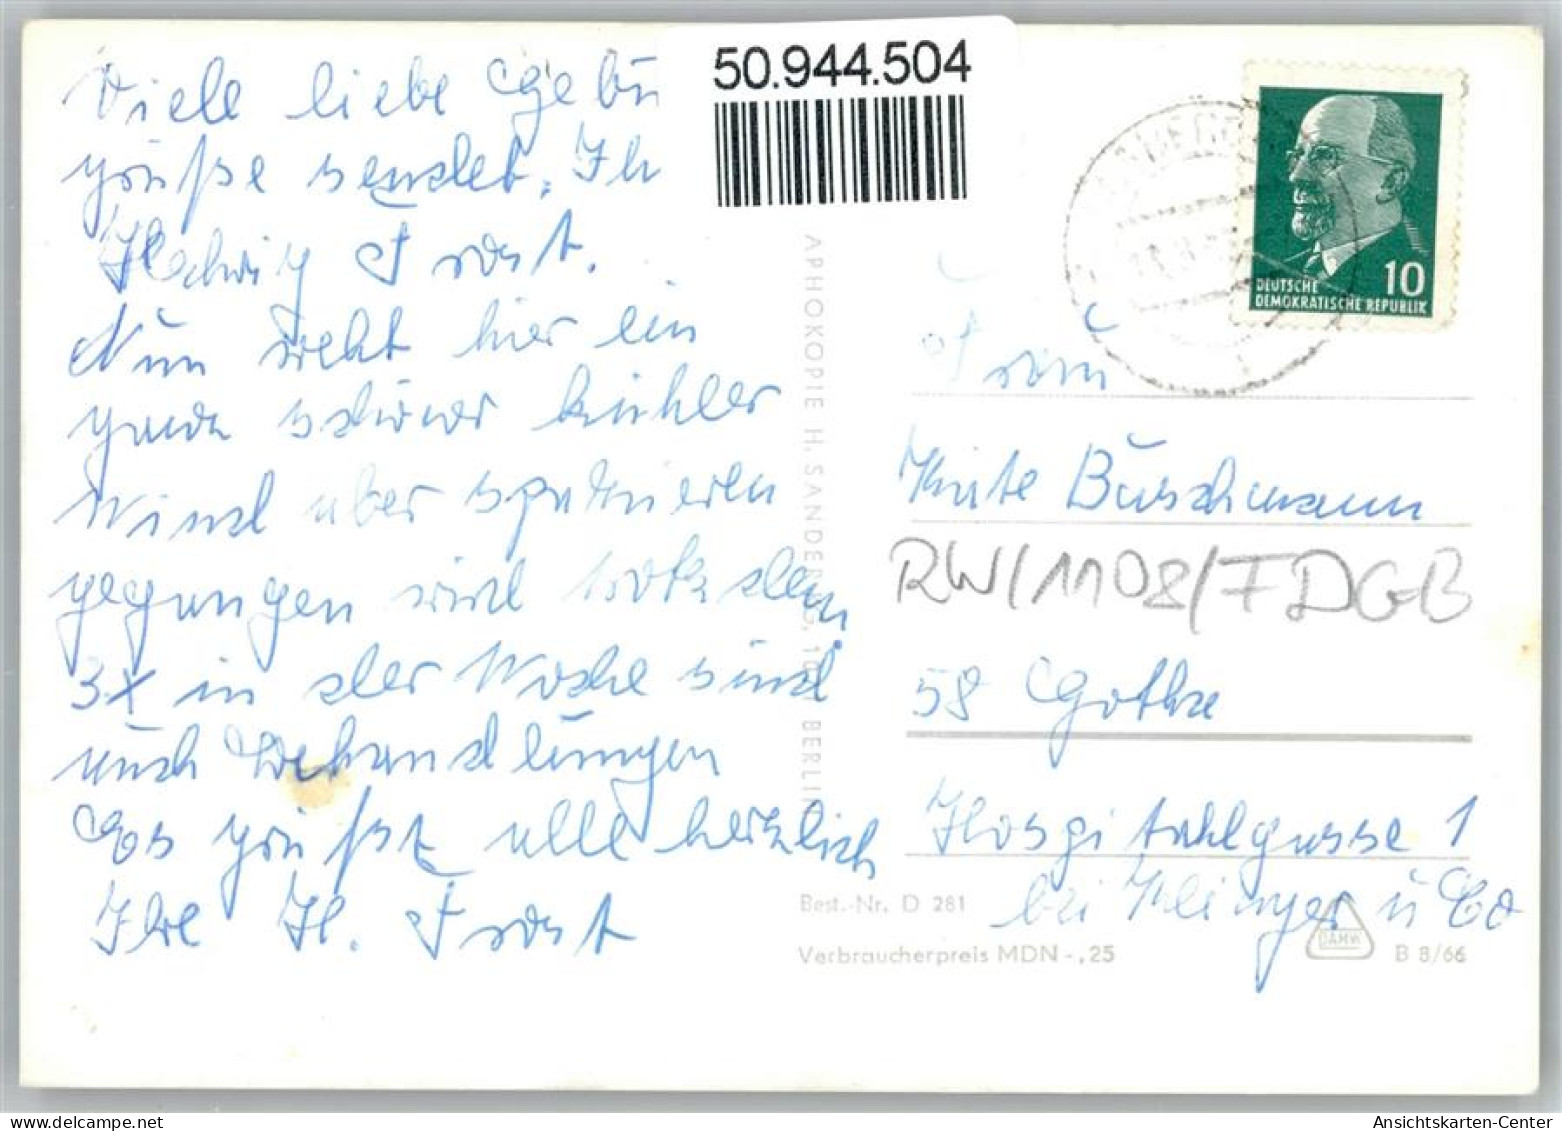 50.944.504
Viele liebe Gebu
grüße sendet. Ih
Hedwig Frost.
Nun weht hier ein
ganz kühler
Wind aber spazieren
gegangen wird trotzdem
3x in der Woche sind
auch Behandlungen
Es grüßt alle herzlich
Ihre H. Frost
APHOKOPIE H. SANDER BERLIN
DEUTSCHE
DEMOKRATISCHE REPUBLIK
10
Frau
Käte Buschmann
RW/1108/FDGB
58 Gotha
Hospitahlgasse 1
bei Klinger u Co
Best.-Nr. D 281
Verbraucherpreis MDN -,25
DAMW
B 8/66
Ansichtskarten-Center